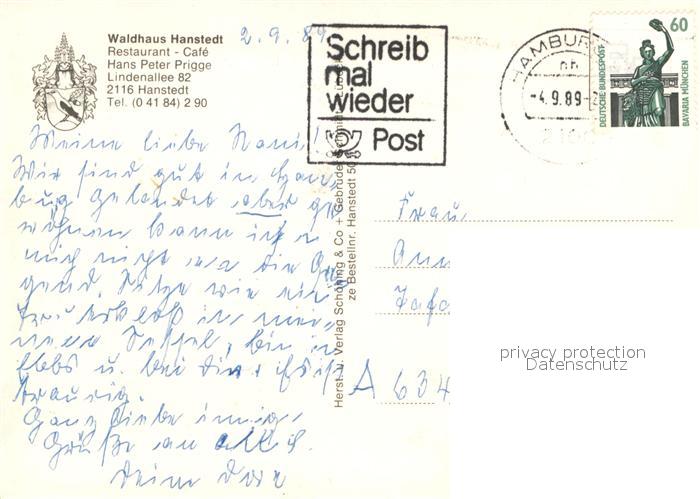 Waldhaus Hanstedt
Restaurant - Café
Hans Peter Prigge
Lindenallee 82
2116 Hanstedt
Tel. (0 41 84) 2 90
2.9.89
Schreib
mal
wieder
Post
HAMBUR
-4.9.89-
60
DEUTSCHE BUNDESPOST
BAVARIA MÜNCHEN
Meine liebe Nani!
Wir sind gut in Ham
burg gelandet aber ge
wöhnen kann ich
mich nicht an die Ge
gend. Sitze wie ein
in mei
nem Sessel, bin in
u. bei Dir
traurig.
Ganz liebe innige
Grüße an alle
Deine
Herst. u. Verlag Schöning & Co + Gebrüder Schmidt
ze Bestellnr. Hanstedt 50
Frau
Ann
A 634
privacy protection
Datenschutz